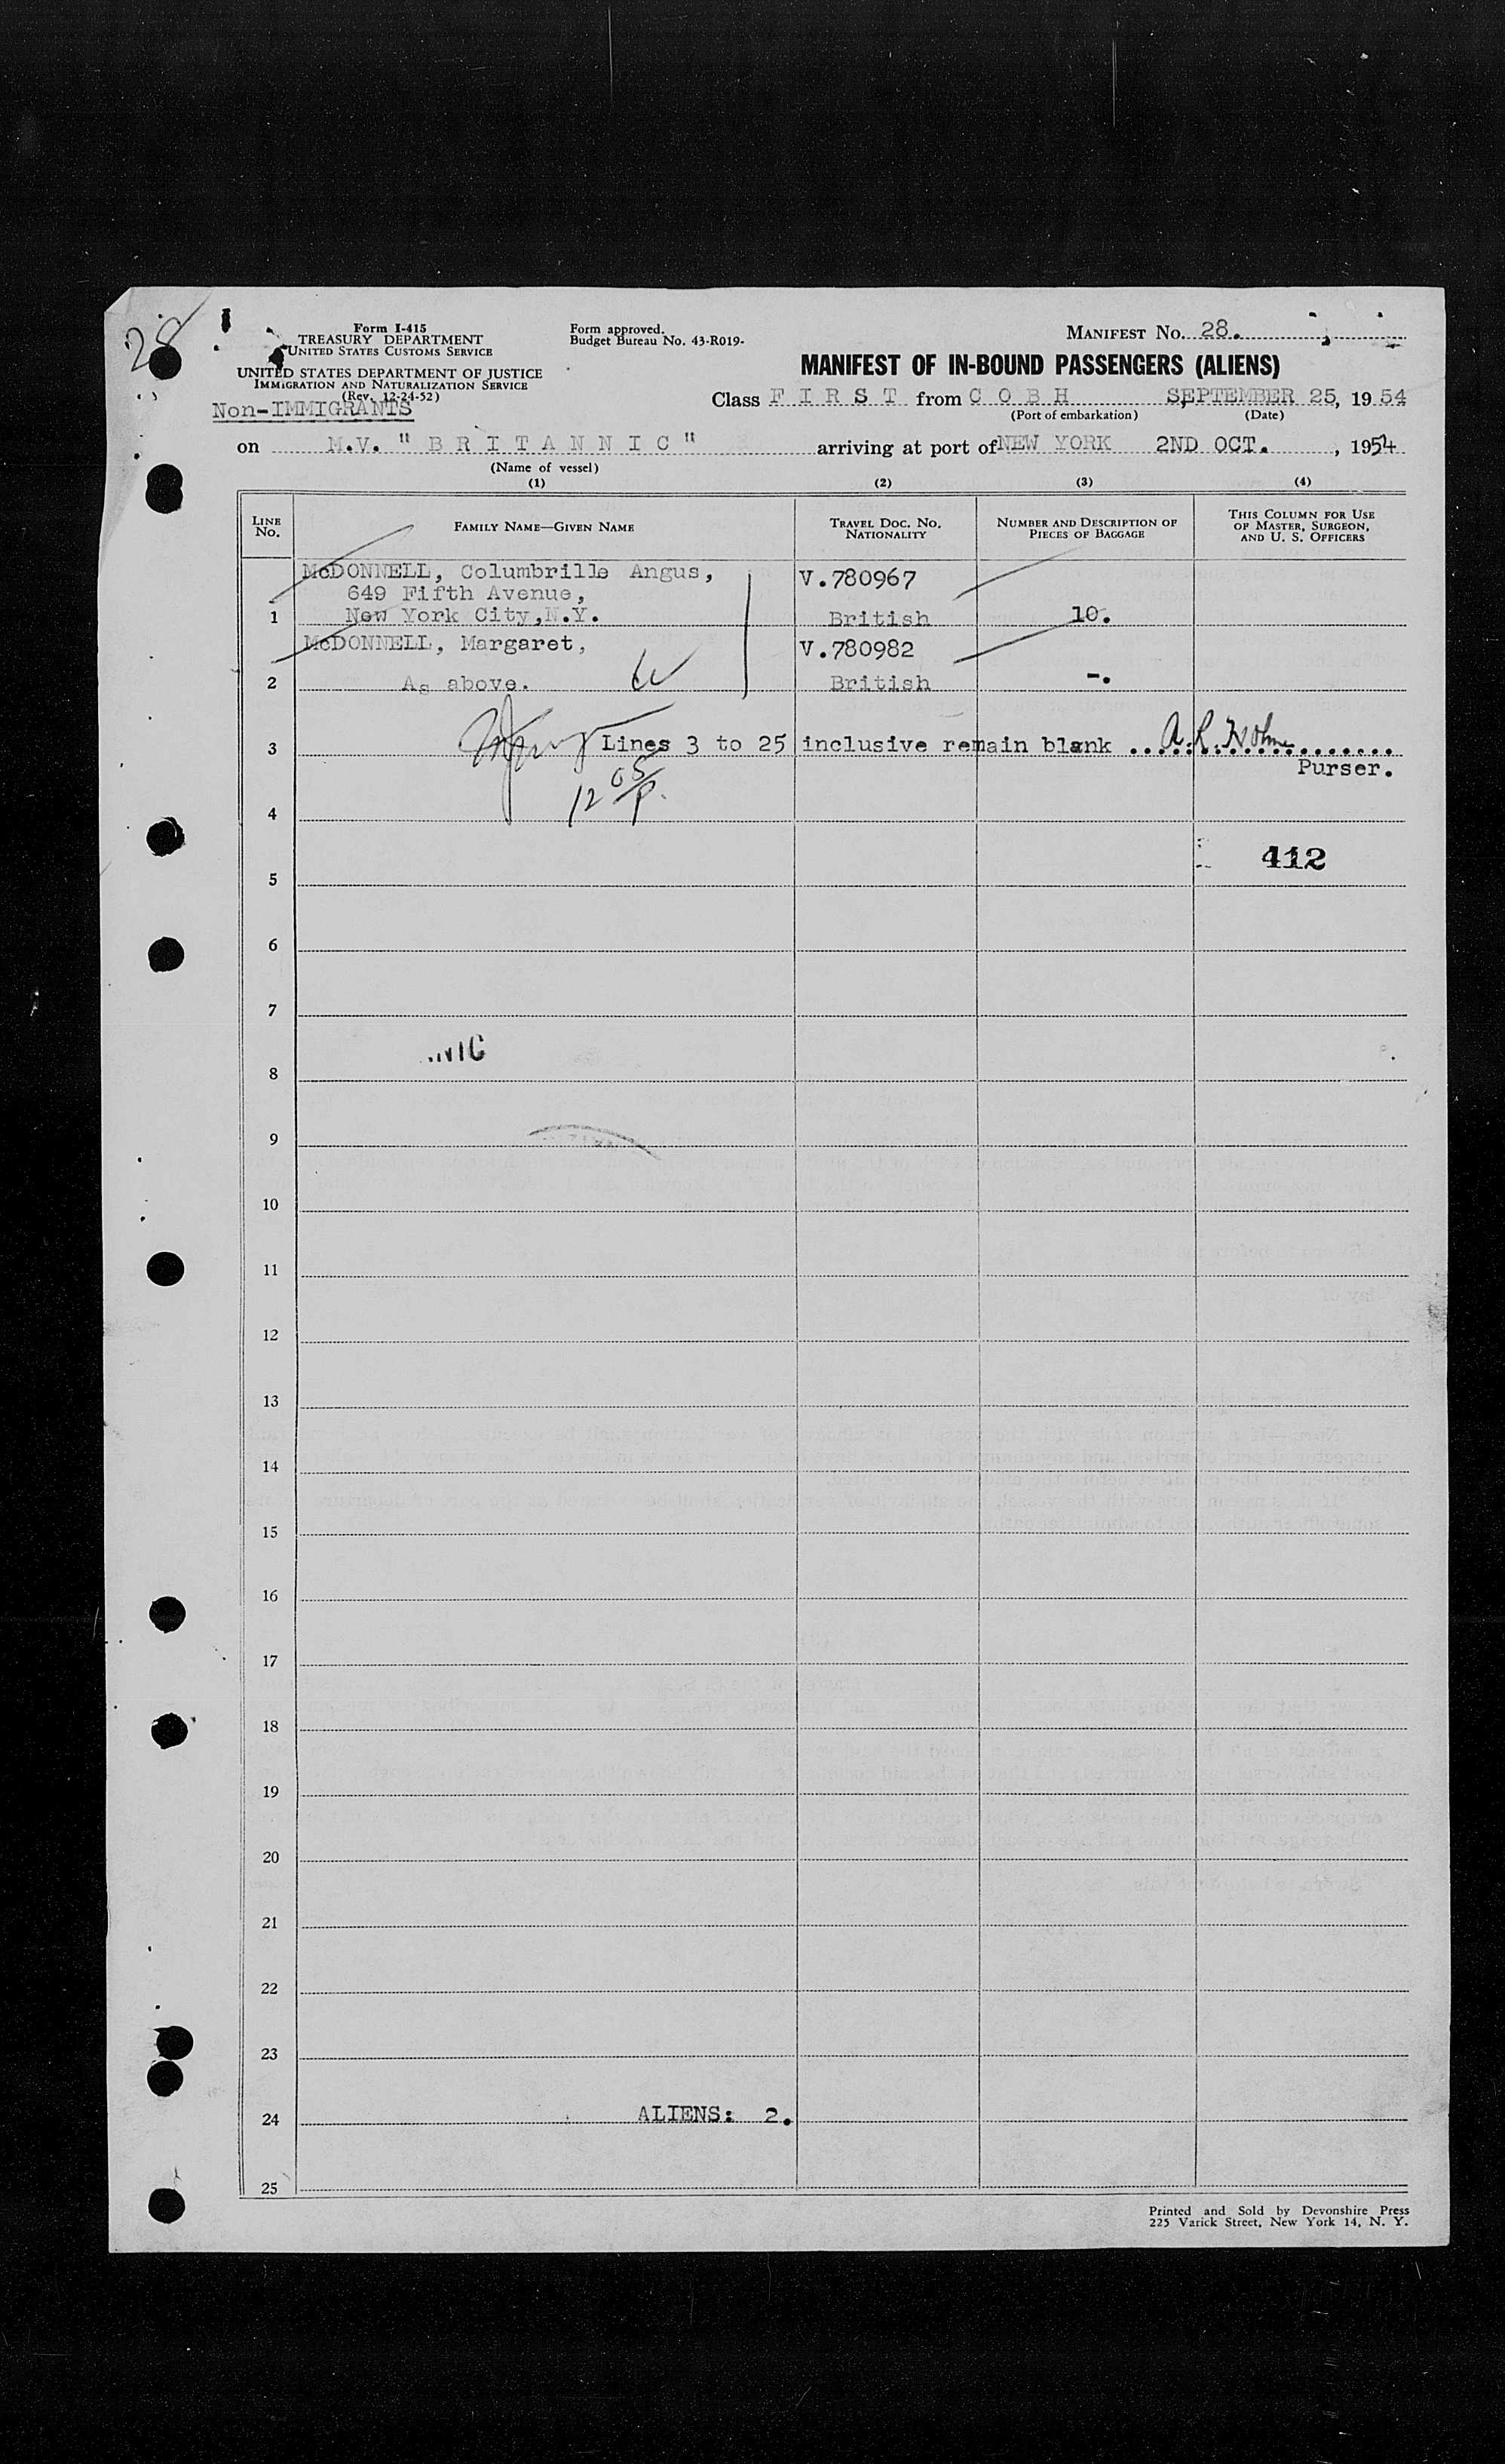 28
Form I-415
TREASURY DEPARTMENT
UNITED STATES CUSTOMS SERVICE
UNITED STATES DEPARTMENT OF JUSTICE
IMMIGRATION AND NATURALIZATION SERVICE
(Rev. 12-24-52)
Non-IMMIGRANTS
Form approved.
Budget Bureau No. 43-R019-
MANIFEST No. 28.
MANIFEST OF IN-BOUND PASSENGERS (ALIENS)
Class F I R S T from C O B H SEPTEMBER 25, 19 54
(Port of embarkation) (Date)
on M.V. " B R I T A N N I C " arriving at port of NEW YORK 2ND OCT. , 1954
(Name of vessel)
(1) (2) (3) (4)
LINE No. FAMILY NAME—GIVEN NAME TRAVEL DOC. No. NATIONALITY NUMBER AND DESCRIPTION OF PIECES OF BAGGAGE THIS COLUMN FOR USE OF MASTER, SURGEON, AND U. S. OFFICERS
McDONNELL, Columbrille Angus, V.780967
649 Fifth Avenue,
1 New York City,N.Y. British 10.
McDONNELL, Margaret, V.780982
2 As above. British -.
3 Lines 3 to 25 inclusive remain blank ..................
Purser.
12 05/P.
4
412
5
6
7
NIC
8
9
10
11
12
13
14
15
16
17
18
19
20
21
22
23
24 ALIENS: 2.
25
Printed and Sold by Devonshire Press
225 Varick Street, New York 14, N. Y.